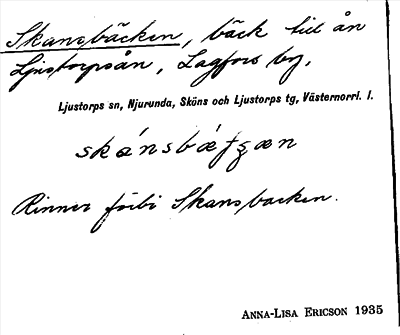 Skansbäcken, bäck till ån
Ljustorpsån, Lagfors by.
Ljustorps sn, Njurunda, Sköns och Ljustorps tg, Västernorrl. l.
skánsbǽʈʂæn
Rinner förbi Skansbacken.
ANNA-LISA ERICSON 1935